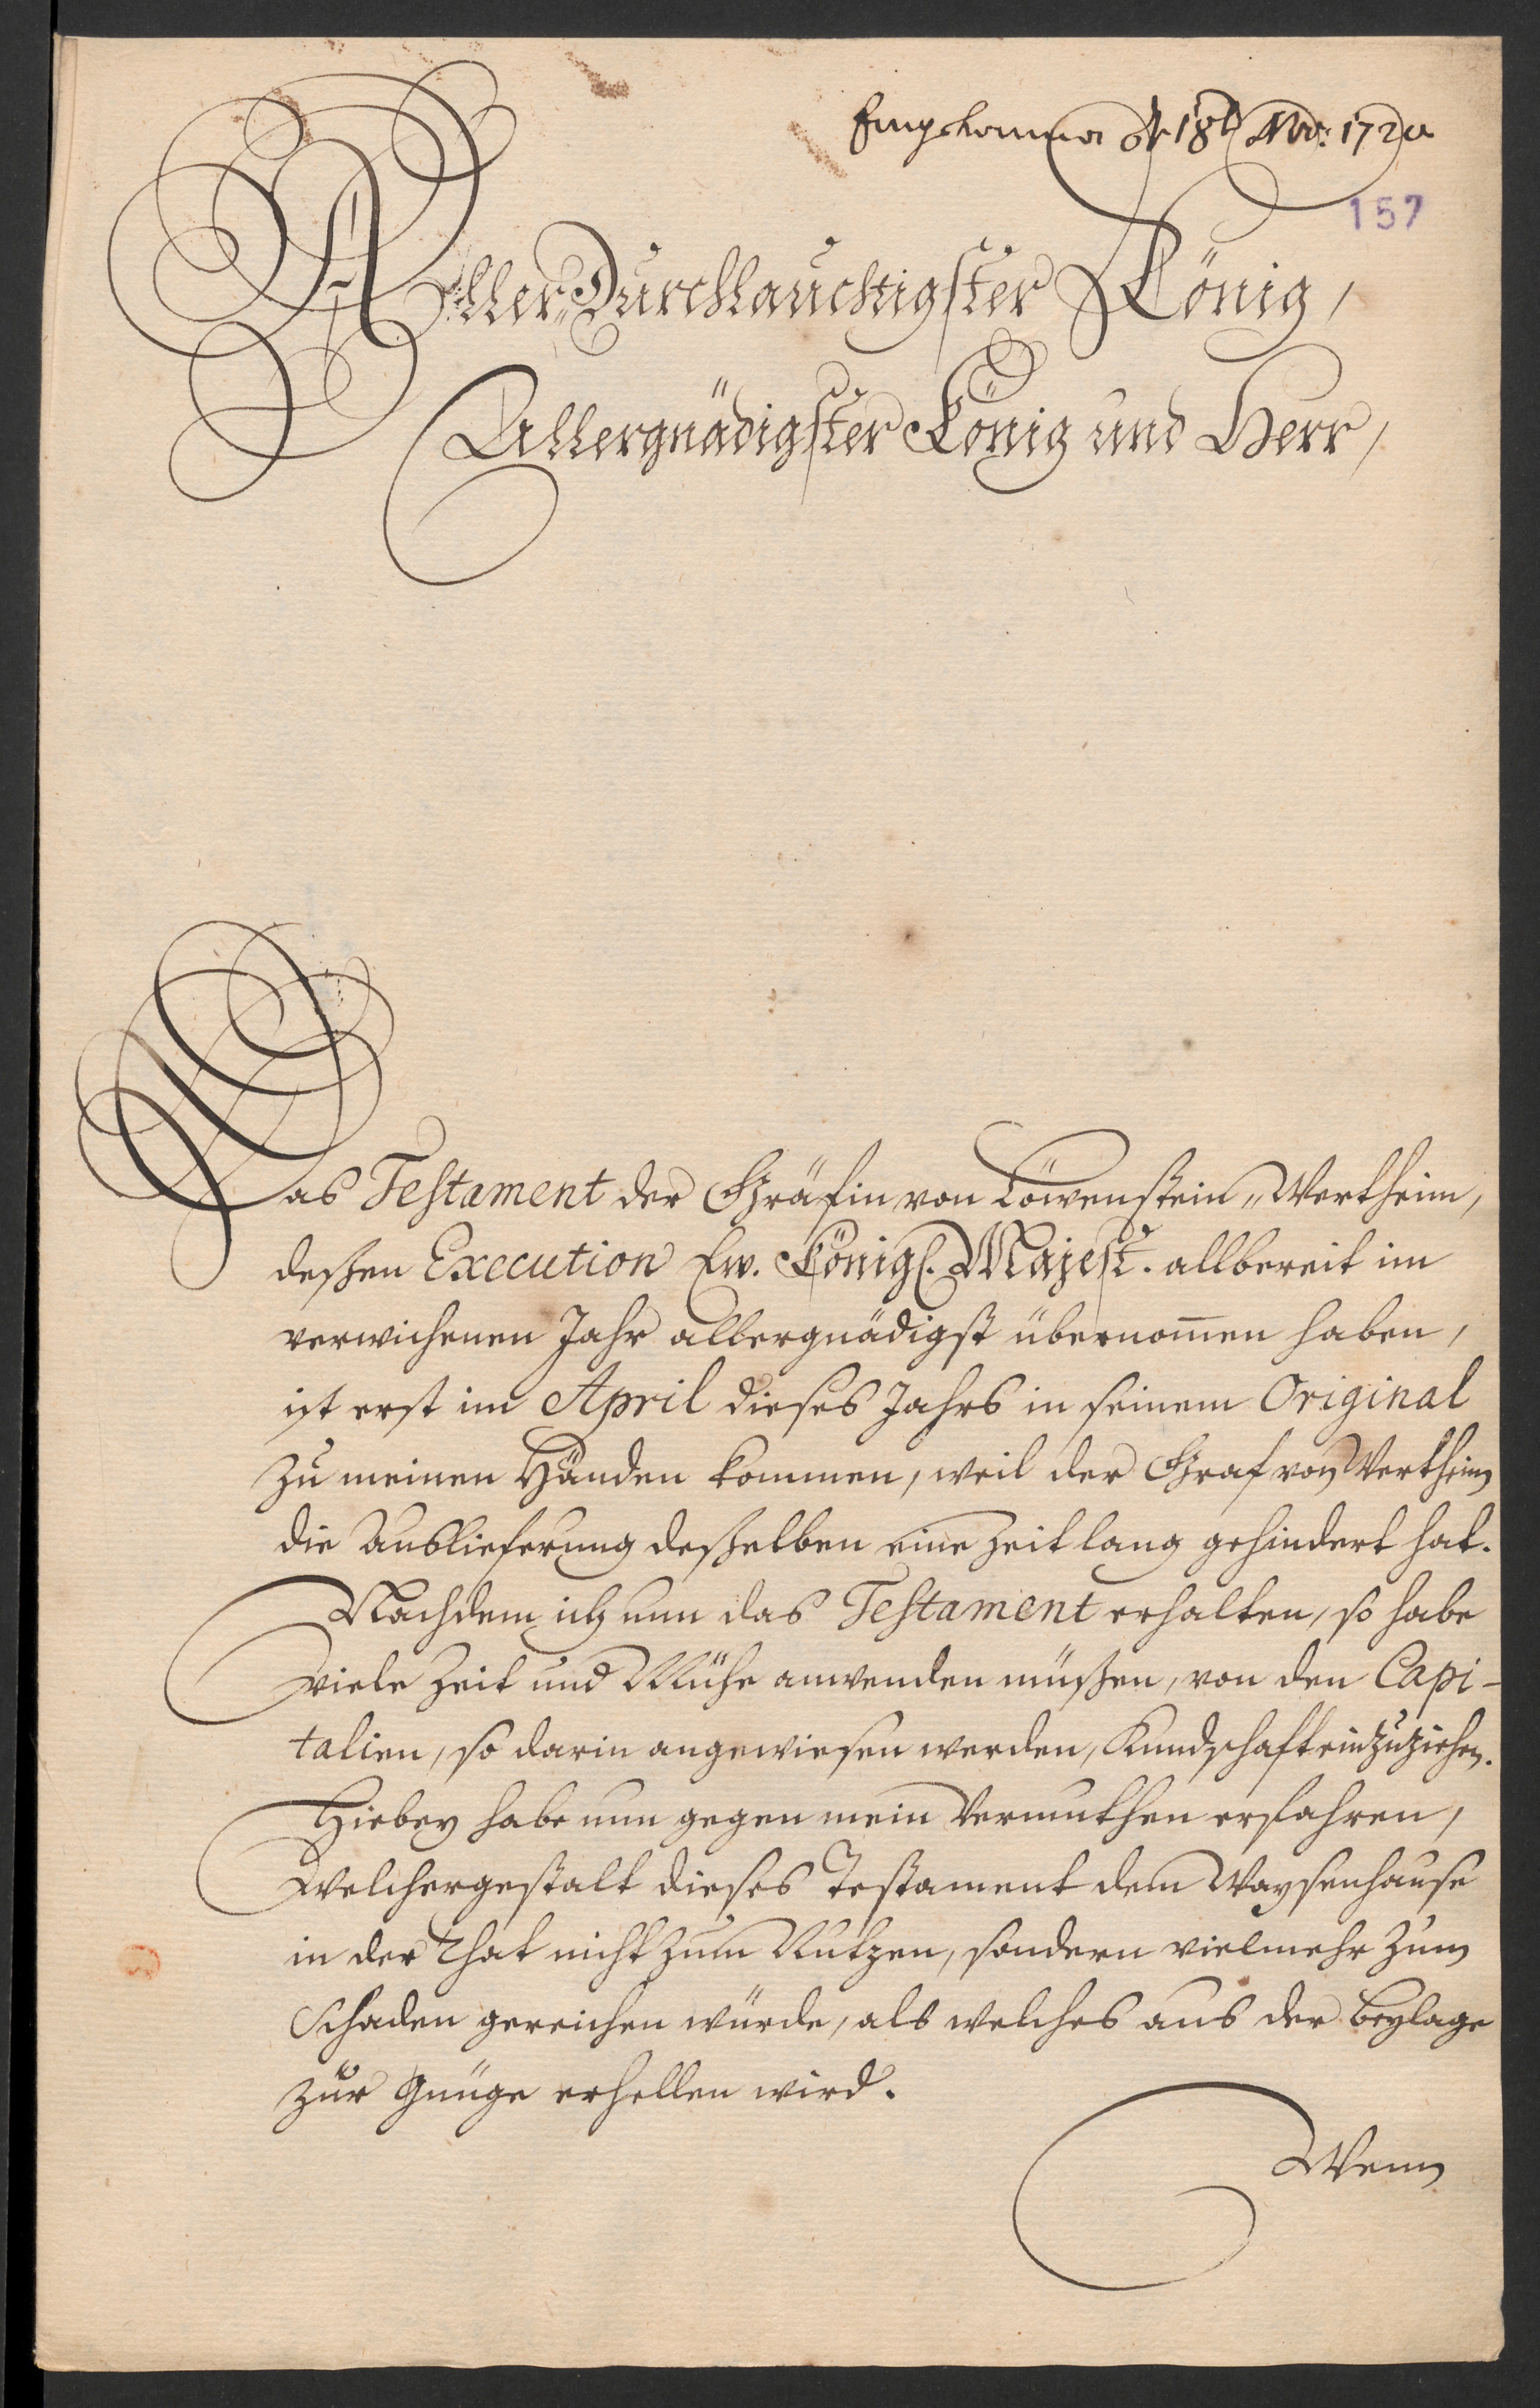 Eingekommen d 18t Nov: 172
157
Aller-Durchlauchtigster König,
Allergnädigster König und Herr,
Das Testament der Gräfin von Löwenstein-Wertheim,
deßen Execution Ew. Königl. Majest. allbereit im
verwichenen Jahr allergnädigst übernom̅en haben,
ist erst im April dieses Jahrs in seinem Original
zu meinen Händen kommen, weil der Graf von Wertheim
die Auslieferung deßelben eine Zeit lang gehindert hat.
Nachdem ich nun das Testament erhalten, so habe
viele Zeit und Mühe anwenden müßen, von den Capi-
talien, so darin angewiesen werden, Kundschaft einzuziehen.
Hiebey habe nun gegen mein Vermuthen erfahren,
welchergestalt dieses Testament dem Waysenhause
in der That nicht zum Nutzen, sondern vielmehr zum
Schaden gereichen würde, als welches aus der Beylage
zur Gnüge erhellen wird.
Wenn